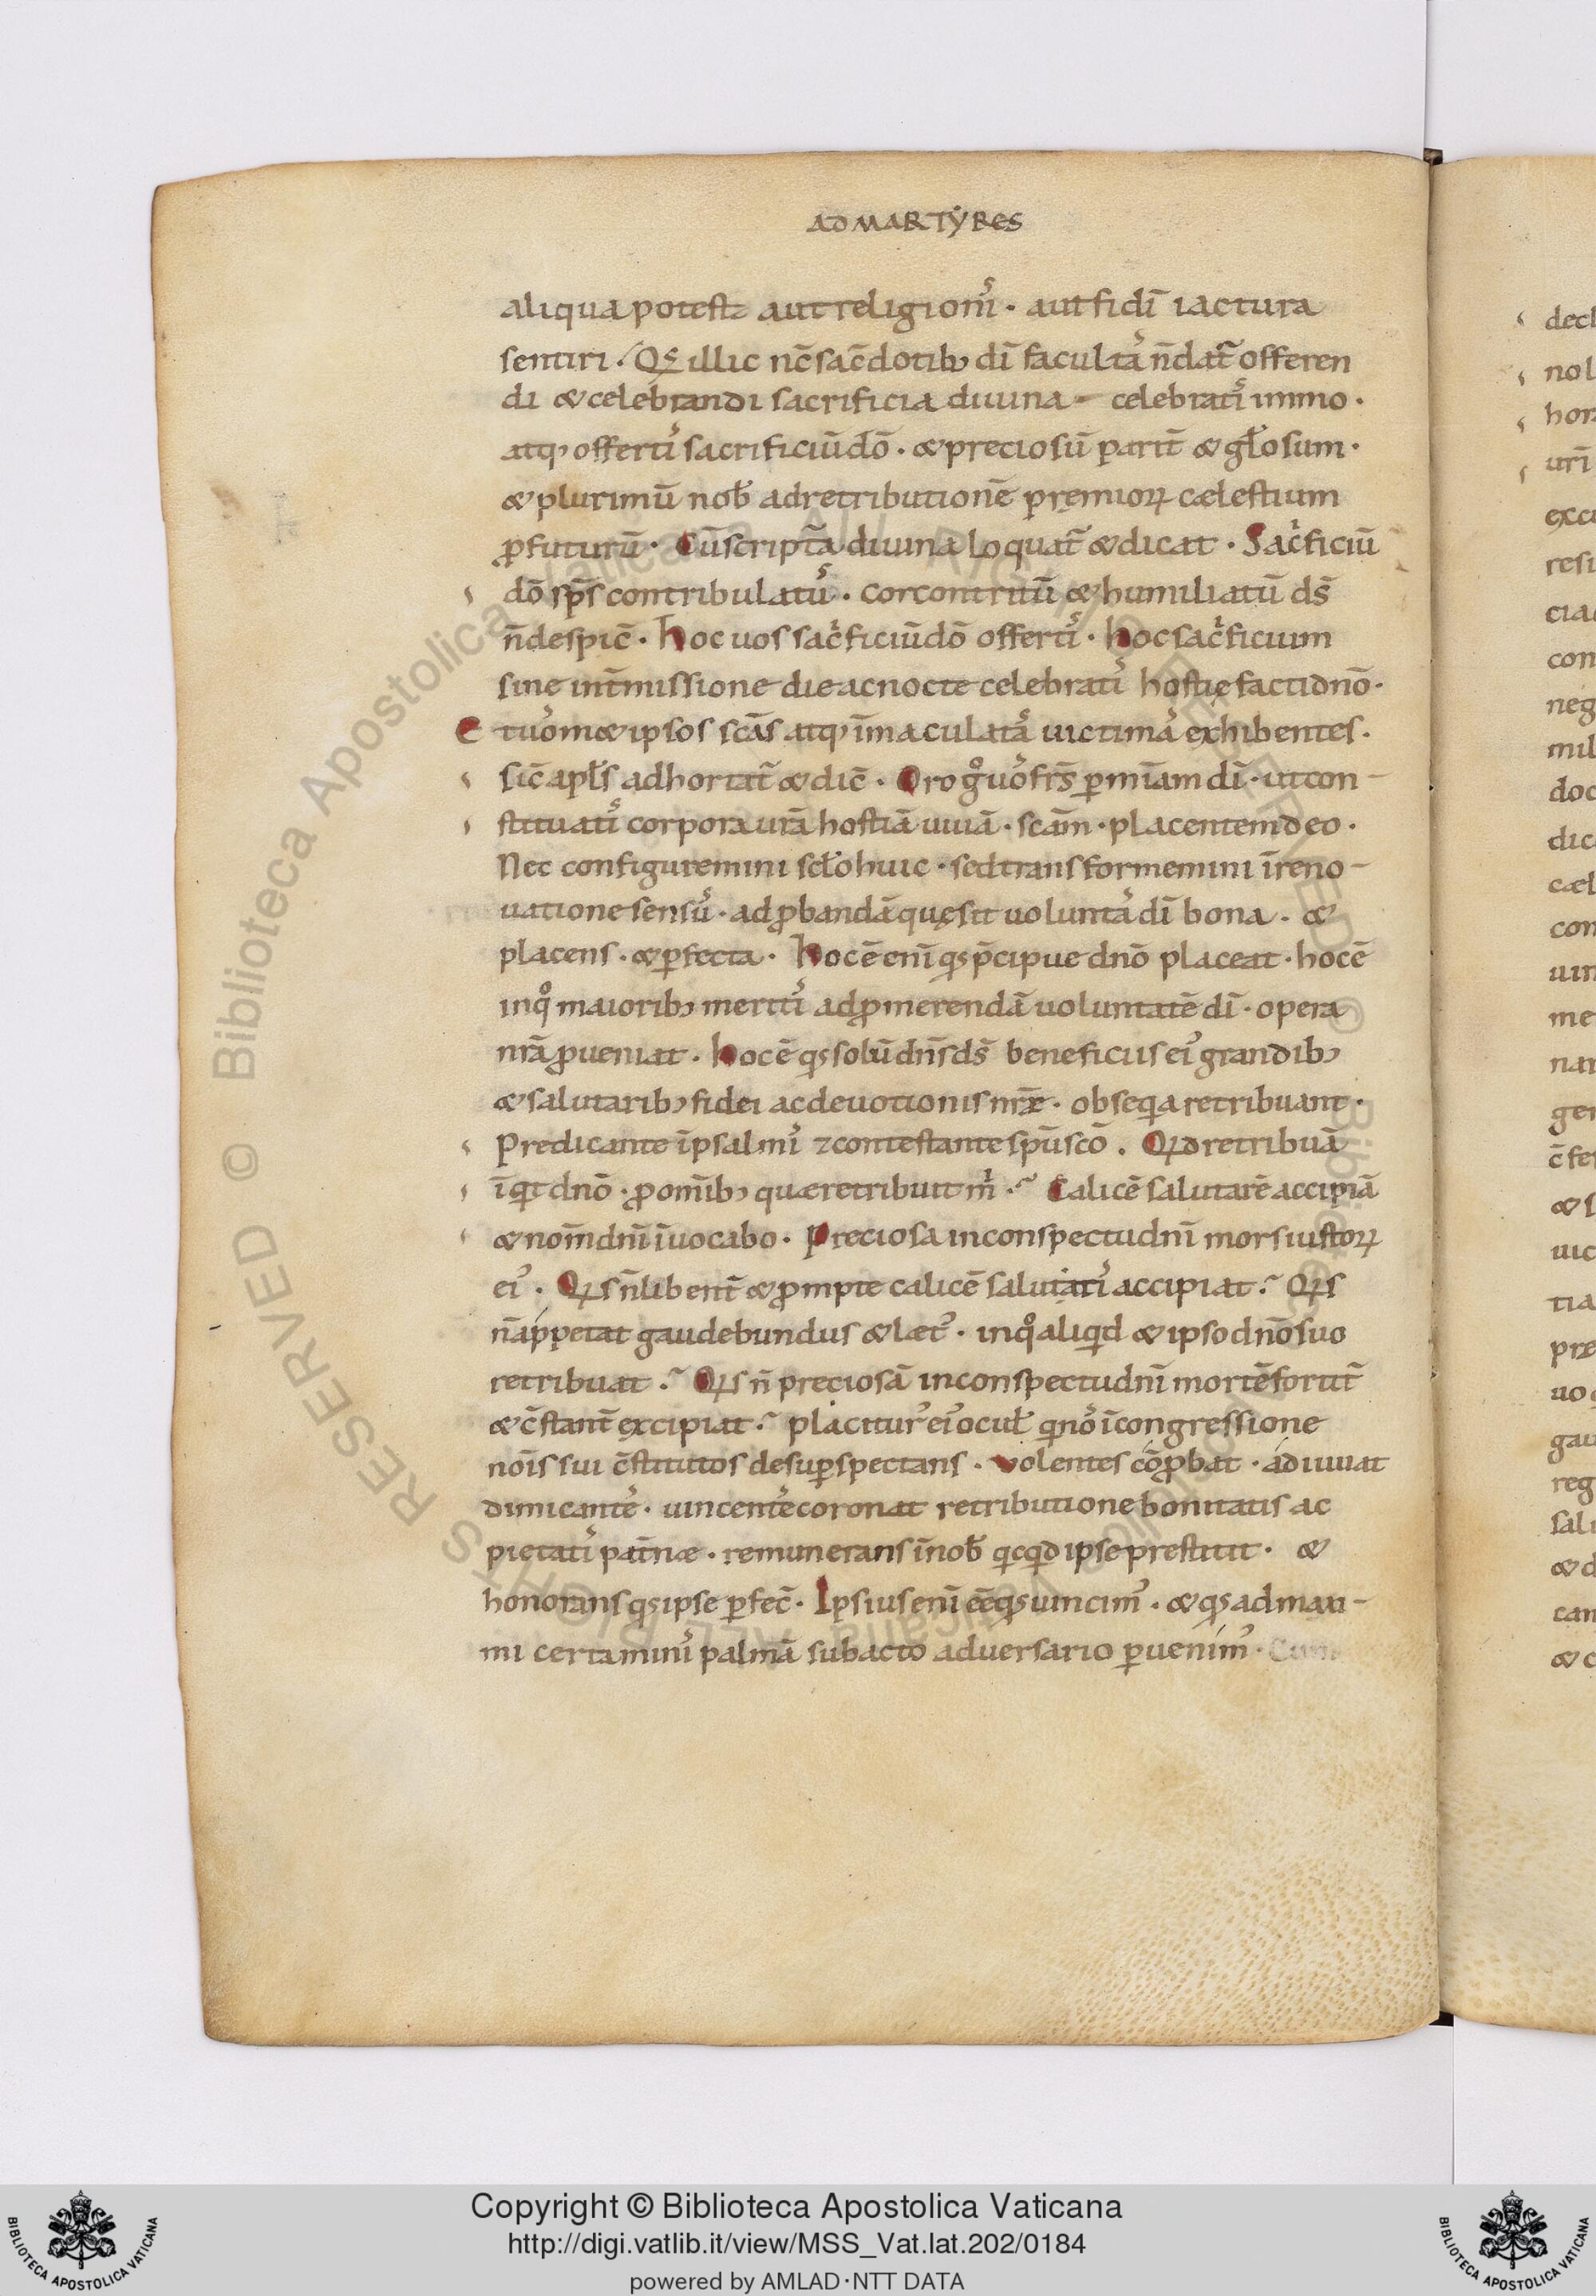 AD MARTYRES
aliqua potest aut religioniſ· aut fidī iactura
sentiri. Qꝫ illic nc̄ sac̄dotibꝫ dī facultaſ n̄ dat̄ offeren
di & celebrandi sacrificia diuina celebratiſ immo·
atqꝫ offertiſ sacrificiū dō· & preciosū parit̄ & gl̄osum·
& plurimū nob̄ ad retributionē p̄ręmioꝝ cælestium
ꝓfuturū· Cū script̄a diuina loquat̄ & dicat· Sacͥficiū
dō sp̄s contribulatuſ· cor contritū & humiliatū ds̄
n̄ despic̄· Hoc uos sacͥficiū dō offertiſ· hoc sacͥficium
sine int̄missione die ac nocte celebratiſ hostię facti dn̄o·
& uomet ipsos sc̄as atqꝫ īmaculataſ uictimaſ exhibentes·
sic̄ apl̄s adhortat̄ & dic̄· Oro gͦ uoſ fr̄s ꝑ mīam dī· ut con-
stituatiſ corpora ur̄a hostiā uiuā· sc̄am· placentem deo·
Nec configuremini scl̄o huic· sed transformemini ī reno-
uatione sensuſ· ad ꝓbandā quę sit uoluntaſ dī bona· &
placens· & ꝑfecta· Hoc ē enī qꝫ p̄cipue dn̄o placeat· hoc ē
in qͦ maioribꝫ meritiſ ad ꝓmerendā uoluntatē dī· opera
nr̄a ꝓueniat· hoc ē qꝫ solū dn̄s ds̄ beneficiis eiꝰ grandibꝫ
& salutaribꝫ fidei ac deuotionis nr̄æ· obseqͥa retribuant·
Predicante ī psalmiſ & contestante sp̄u sc̄o. Qͥd retribuā
īqͥt dn̄o· ꝓ om̄ibꝫ quæ retribuit mͥ· Calicē salutarē accipiā
& nom̄ dn̄i īuocabo· Preciosa in conspectu dn̄i mors iustoꝝ
eiꝰ· Qͥs n̄ libent̄ & ꝓmpte calicē salutatiſ accipiat· Qͥs
n̄ appetat gaudebundus & lætꝰ· in qͦ aliqͥd & ipso dn̄o suo
retribuat· Qͥs n̄ preciosā in conspectu dn̄i mortē fortit̄
& c̄stant̄ excipiat· placiturꝰ eiꝰ ocul̄ qͥ noſ ī congressione
nōis sui c̄stitutos desuꝑ spectans· volentes cōꝓbat· adiuuat
dimicanteſ· uincenteſ coronat retributione bonitatis ac
pietatiſ pat̄næ· remunerans ī nob̄ qͥcqͥd ipse prestitit· &
honorans qꝫ ipse ꝑfec̄· Ipsius enī eē qꝫ uincimꝰ· & qꝫ ad maxi-
mi certaminiſ palmā subacto aduersario ꝑuenimꝰ·
decl
nol
hor
urī
resi
con
neg
mil
doc
cæl
con
me
nar
ger
& s
uic
tia
pre
gau
reg
& d
& c
Copyright © Biblioteca Apostolica Vaticana
http://digi.vatlib.it/view/MSS_Vat.lat.202/0184
powered by AMLAD·NTT DATA
BIBLIOTECA APOSTOLICA VATICANA
BIBLIOTECA APOSTOLICA VATICANA